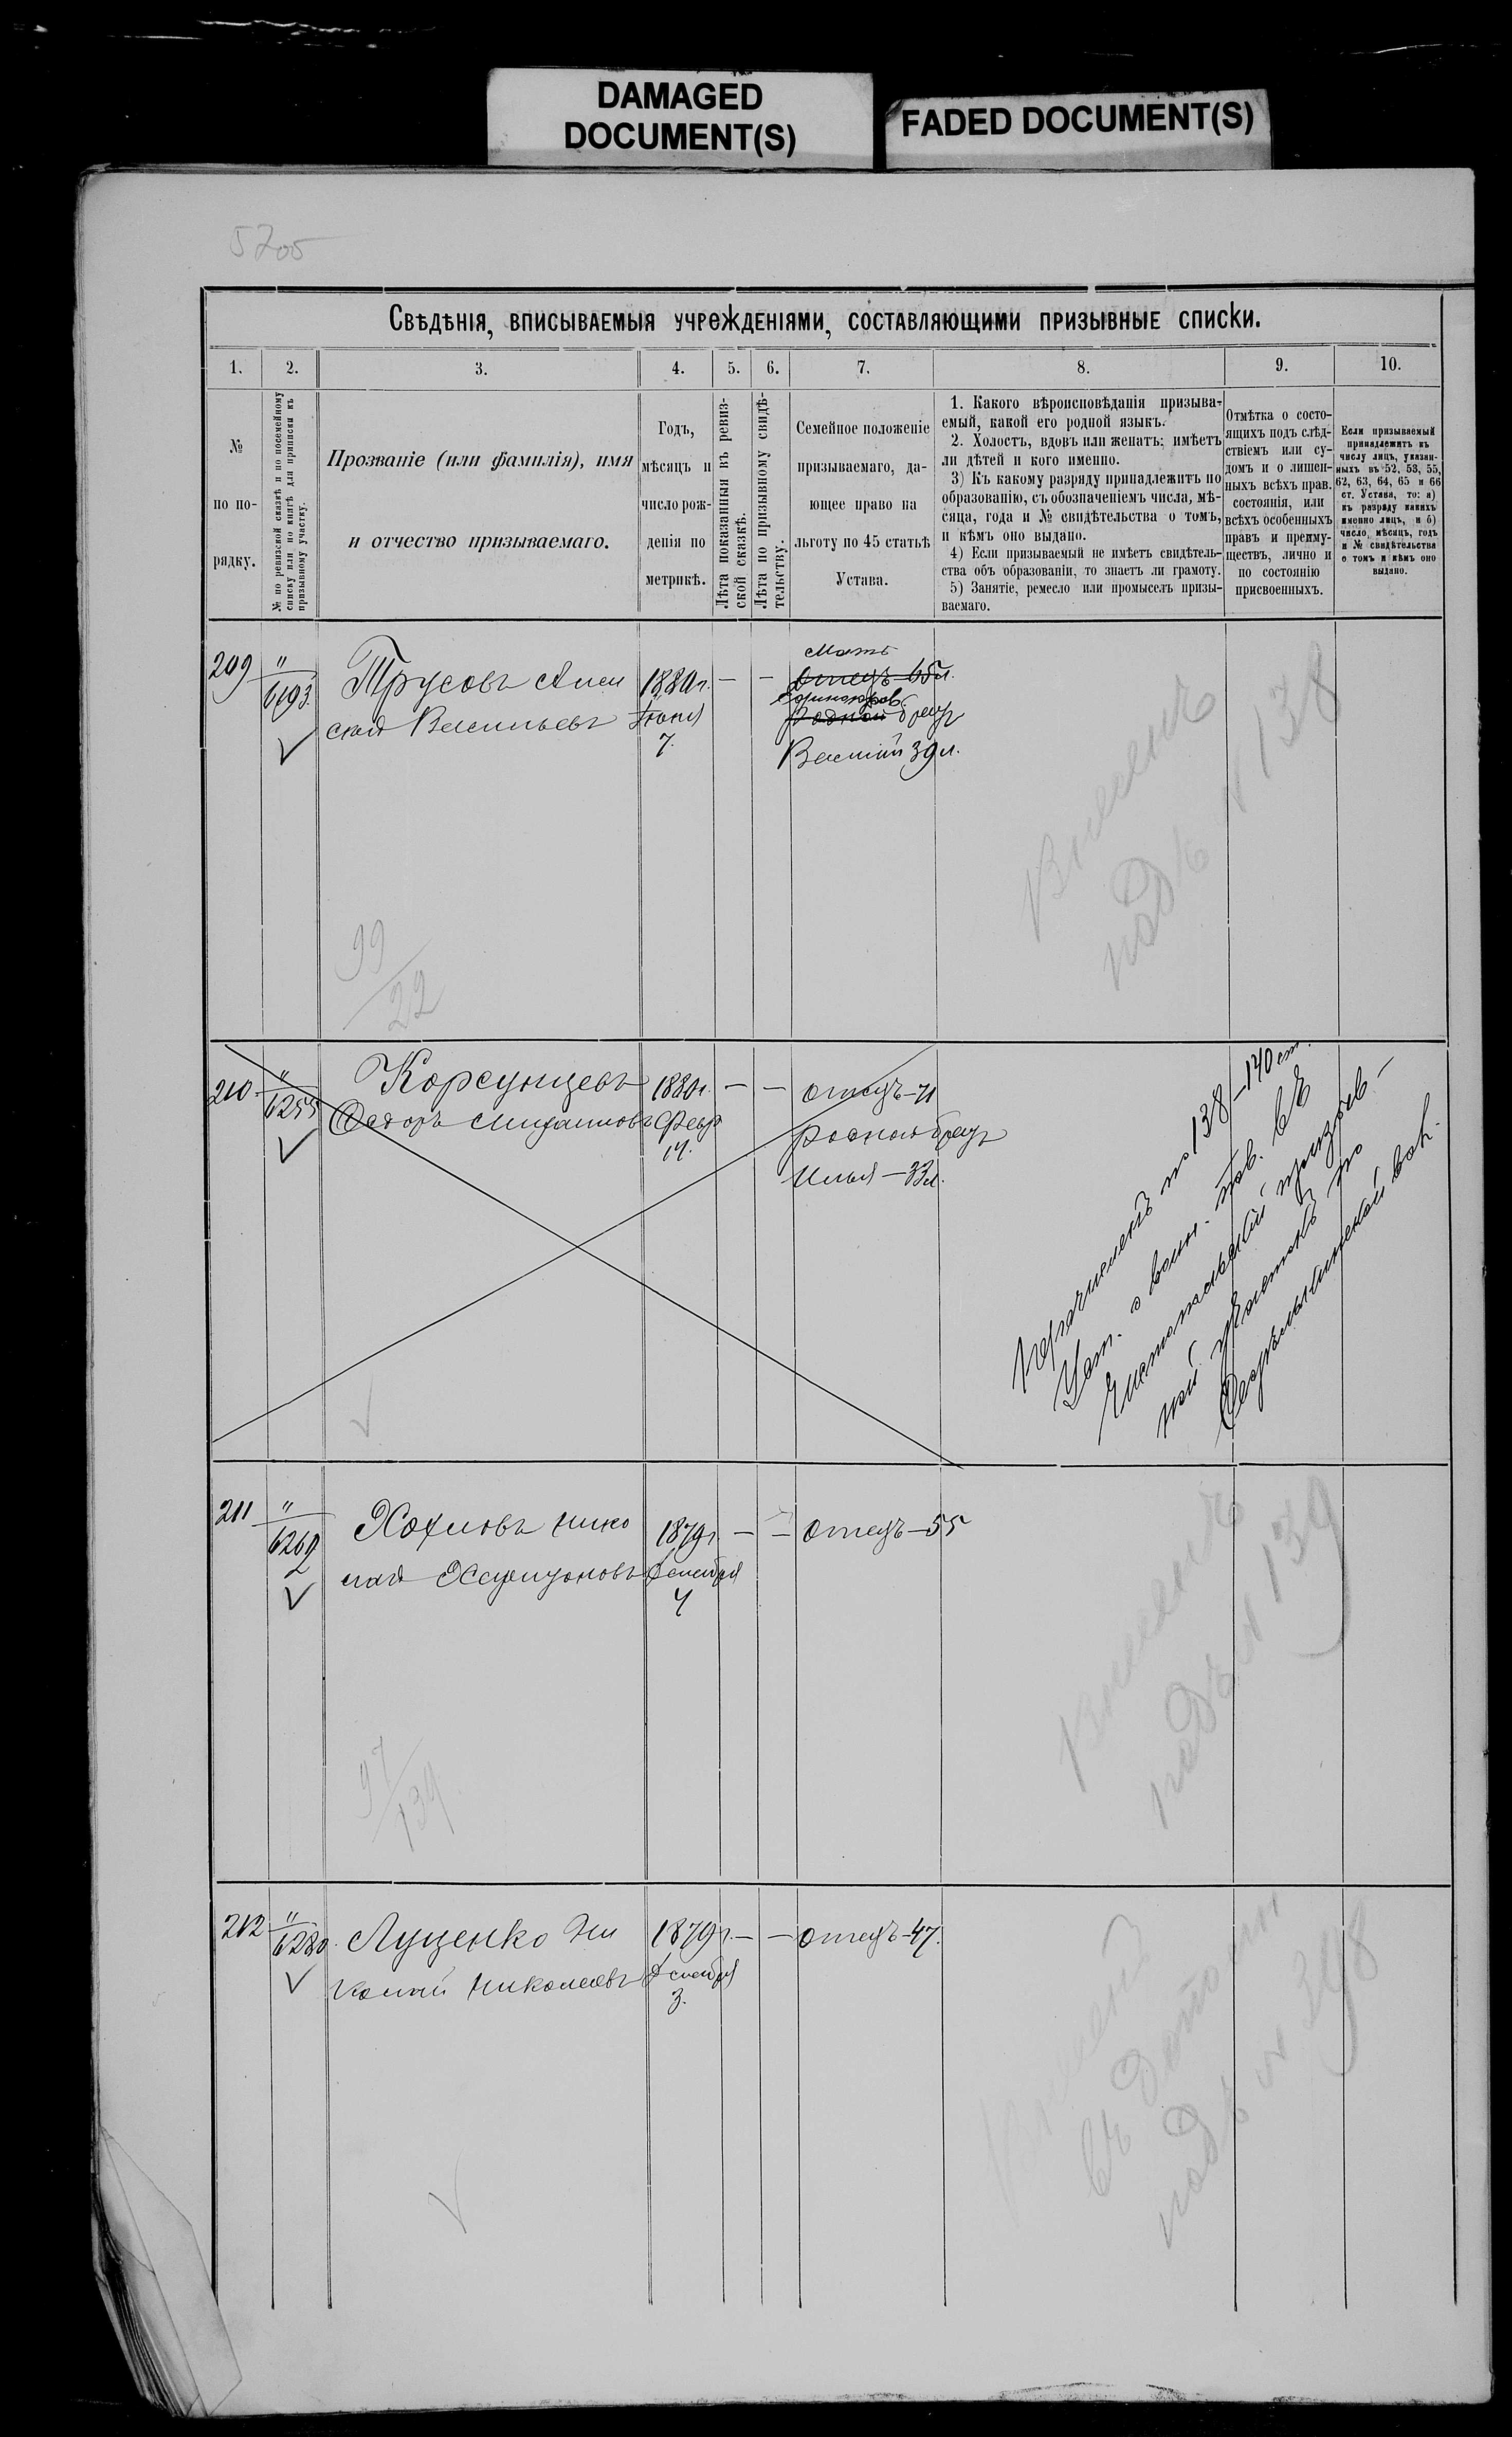 DAMAGED
DOCUMENT(S)
FADED DOCUMENT(S)
5705
Свѣдѣнія, вписываемыя учрежденіями, составляющими призывные списки.
1.
2.
3.
4.
5.
6.
7.
8.
9.
10.
№
по по-
рядку.
№ по ревизской сказкѣ и по посемейному
списку или по книгѣ для приписки къ
призывному участку.
Прозваніе (или фамилія), имя
и отчество призываемаго.
Годъ,
мѣсяцъ и
число рож-
денія по
метрикѣ.
Лѣта показанныя въ ревиз-
ской сказкѣ.
Лѣта по призывному свидѣ-
тельству.
Семейное положеніе
призываемаго, да-
ющее право на
льготу по 45 статьѣ
Устава.
1. Какого вѣроисповѣданія призыва-
емый, какой его родной языкъ.
2. Холостъ, вдовъ или женатъ; имѣетъ
ли дѣтей и кого именно.
3) Къ какому разряду принадлежитъ по
образованію, съ обозначеніемъ числа, мѣ-
сяца, года и № свидѣтельства о томъ,
и кѣмъ оно выдано.
4) Если призываемый не имѣетъ свидѣтель-
ства объ образованіи, то знаетъ ли грамоту.
5) Занятіе, ремесло или промыселъ призы-
ваемаго.
Отмѣтка о состо-
ящихъ подъ слѣд-
ствіемъ или су-
домъ и о лишен-
ныхъ всѣхъ прав.
состоянія, или
всѣхъ особенныхъ
правъ и преиму-
ществъ, лично и
по состоянію
присвоенныхъ.
Если призываемый
принадлежитъ къ
числу лицъ, указан-
ныхъ въ 52, 53, 55,
62, 63, 64, 65 и 66
ст. Устава, то: а)
къ разряду какихъ
именно лицъ, и б)
число, мѣсяцъ, годъ
и № свидѣтельства
о томъ и кѣмъ оно
выдано.
209
"
6193.
Трусовъ Алек
сѣй Васильевъ
1880г.
Іюня
7.
—
—
Мать
Отецъ 65л.
единокров.
Родной братъ
Василій 39л.
Внесенъ
подъ № 138
99
22
210
"
6255
Корсунцевъ
Федоръ Михаиловъ
1880г.
Февр
14.
—
—
отецъ—71
родной братъ
Илья—33л.
Перечисленъ по 138—140 ст.
Уст. о воин. пов. въ
призыв-
ной участокъ по
вол.
211
"
6262
Хохловъ Нико
лай Харитоновъ
1879г.
Декабря
4
—
—
отецъ—55
Внесенъ
подъ № 139
97
139
212
"
6280.
Луценко Ни
колай Николаевъ
1879г.
Декабря
3.
—
—
отецъ—47.
Внесенъ
подъ № 398